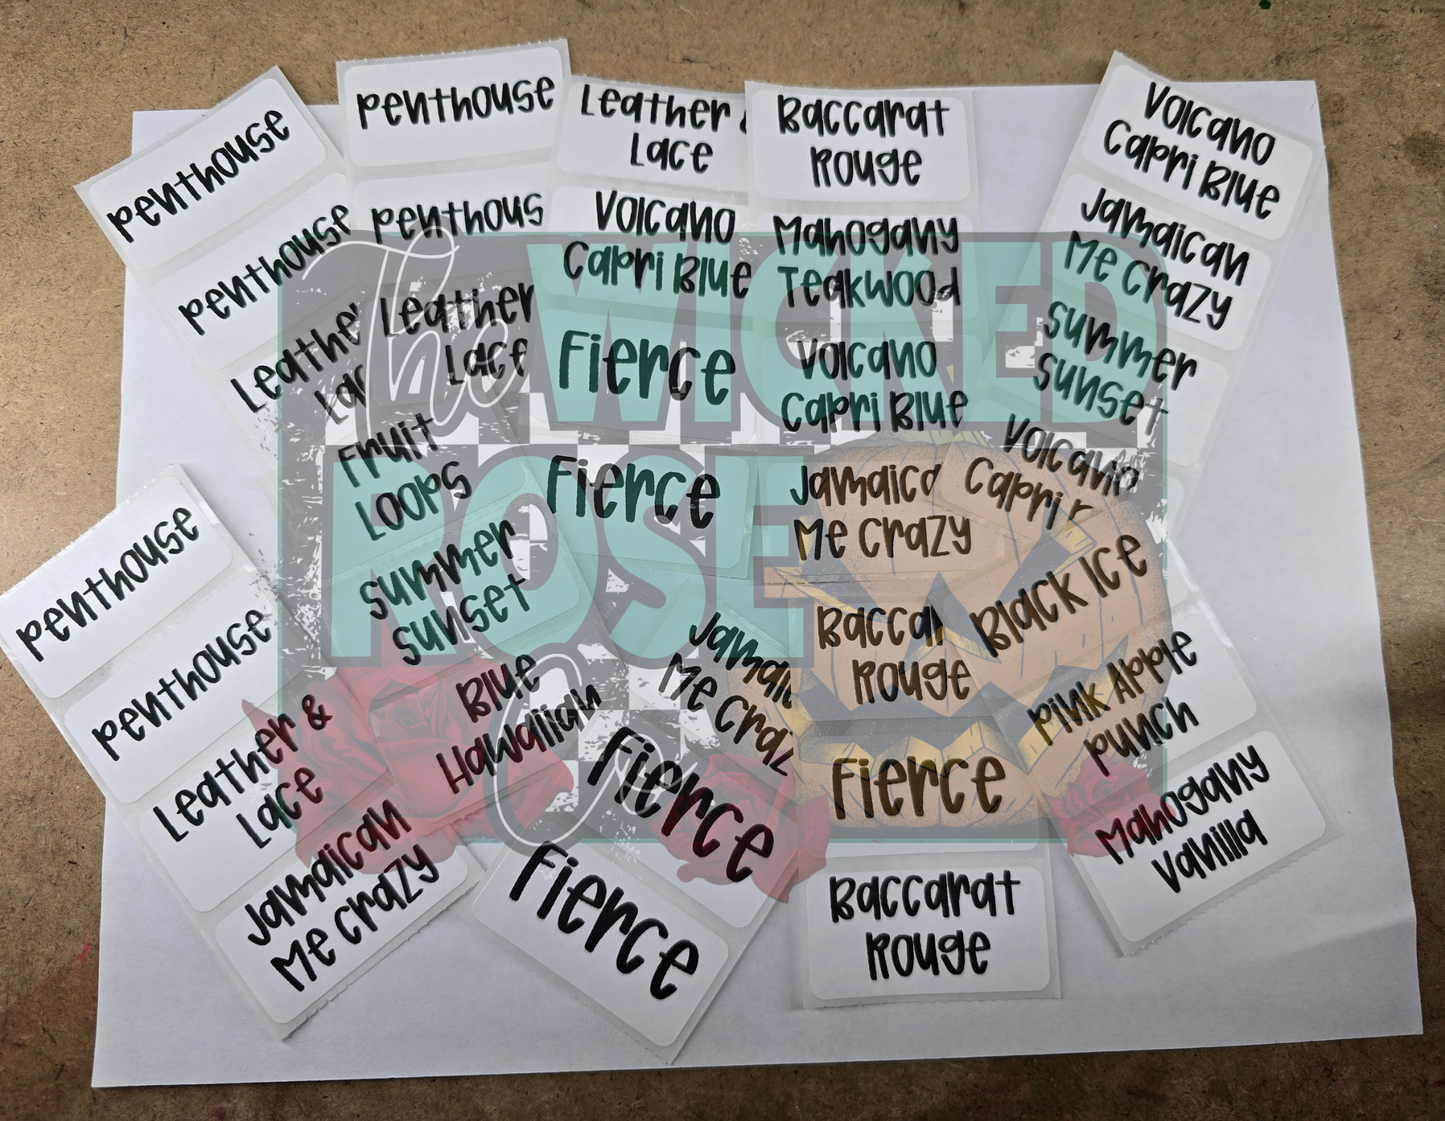 Penthouse
Penthouse
Leather
Lac
Penthouse
Penthous
Leather
Lace
Fruit
Loops
Summer
Sunset
Blue
Hawaiian
Leather &
Lace
Volcano
Capri Blue
Fierce
Fierce
Jamaic
Me Craz
Fierce
Fierce
Baccarat
Rouge
Mahogany
Teakwood
Volcano
Capri Blue
Jamaica
Me Crazy
Baccar
Rouge
Fierce
Baccarat
Rouge
Volcano
Capri Blue
Jamaican
Me Crazy
Summer
Sunset
Volcano
Capri
Black Ice
Pink Apple
Punch
Mahogany
Vanilla
Penthouse
Penthouse
Leather &
Lace
Jamaican
Me Crazy
The WICKED
ROSE
Co